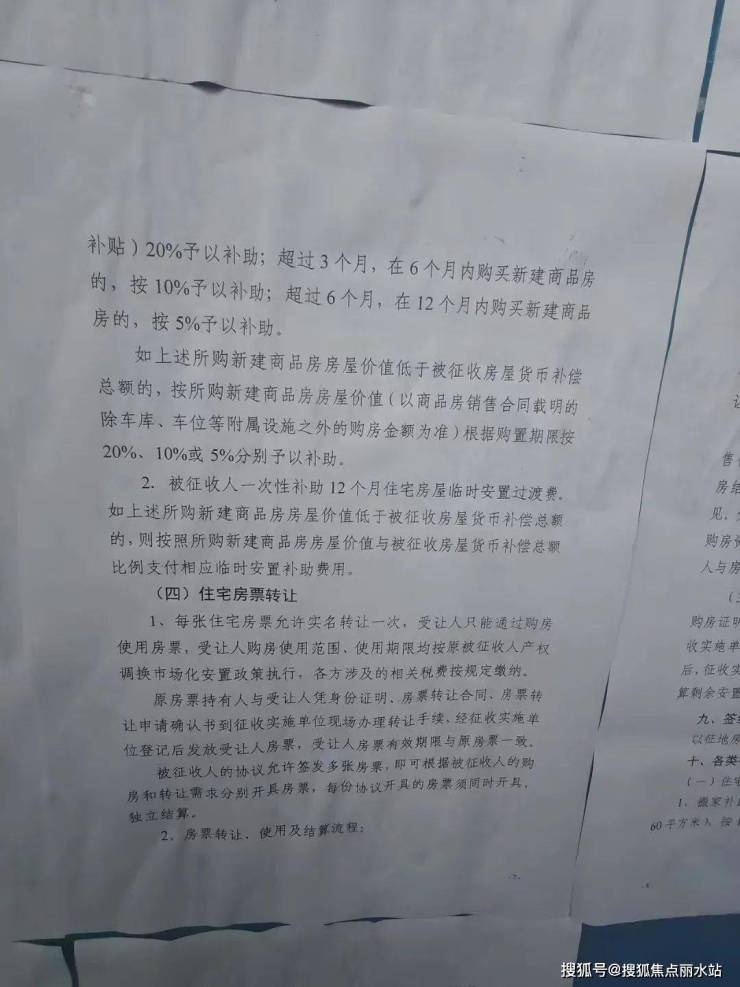 补贴）20%予以补助；超过3个月，在6个月内购买新建商品房
的，按10%予以补助；超过6个月，在12个月内购买新建商品
房的，按5%予以补助。
如上述所购新建商品房房屋价值低于被征收房屋货币补偿
总额的，按所购新建商品房房屋价值（以商品房销售合同载明的
除车库、车位等附属设施之外的购房金额为准）根据购置期限按
20%、10%或5%分别予以补助。
2. 被征收人一次性补助12个月住宅房屋临时安置过渡费。
如上述所购新建商品房房屋价值低于被征收房屋货币补偿总额
的，则按照所购新建商品房房屋价值与被征收房屋货币补偿总额
比例支付相应临时安置补助费用。
（四）住宅房票转让
1、每张住宅房票允许实名转让一次，受让人只能通过购房
使用房票，受让人购房使用范围、使用期限均按原被征收人产权
调换市场化安置政策执行，各方涉及的相关税费按规定缴纳。
原房票持有人与受让人凭身份证明、房票转让合同、房票转
让申请确认书到征收实施单位现场办理转让手续，经征收实施单
位登记后发放受让人房票，受让人房票有效期限与原房票一致。
被征收人的协议允许签发多张房票，即可根据被征收人的购
房和转让需求分别开具房票，每份协议开具的房票须同时开具，
独立结算。
2、房票转让、使用及结算流程：
- 7 -
售
房结
见，
购房资
人与房
购房证明
收实施单
后，征收实
算剩余安置
九、签
以征地房
十、各类
（一）住宅
1、搬家补
60平方米），按
- 8
搜狐号@搜狐焦点丽水站